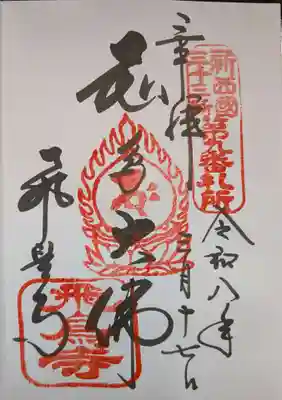 新西國
三十三所
第九番札所
令和八年
三月十七日
飛鳥大佛
飛鳥寺
飛鳥寺